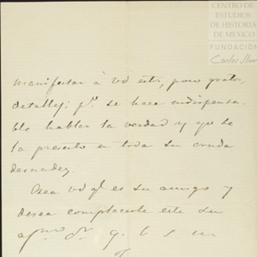 CENTRO DE
ESTUDIOS
DE HISTORIA
DE MEXICO
FUNDACIÓN
Carlos Slim
manifestar à Vd esto, poco grato,
detalle; pº se hace indispensa-
ble hablar la verdad y yo se
la presento en toda su cruda
desnudez.
Crea vd qe es su amigo y
desea complacerle este su
afmo
q. b s m